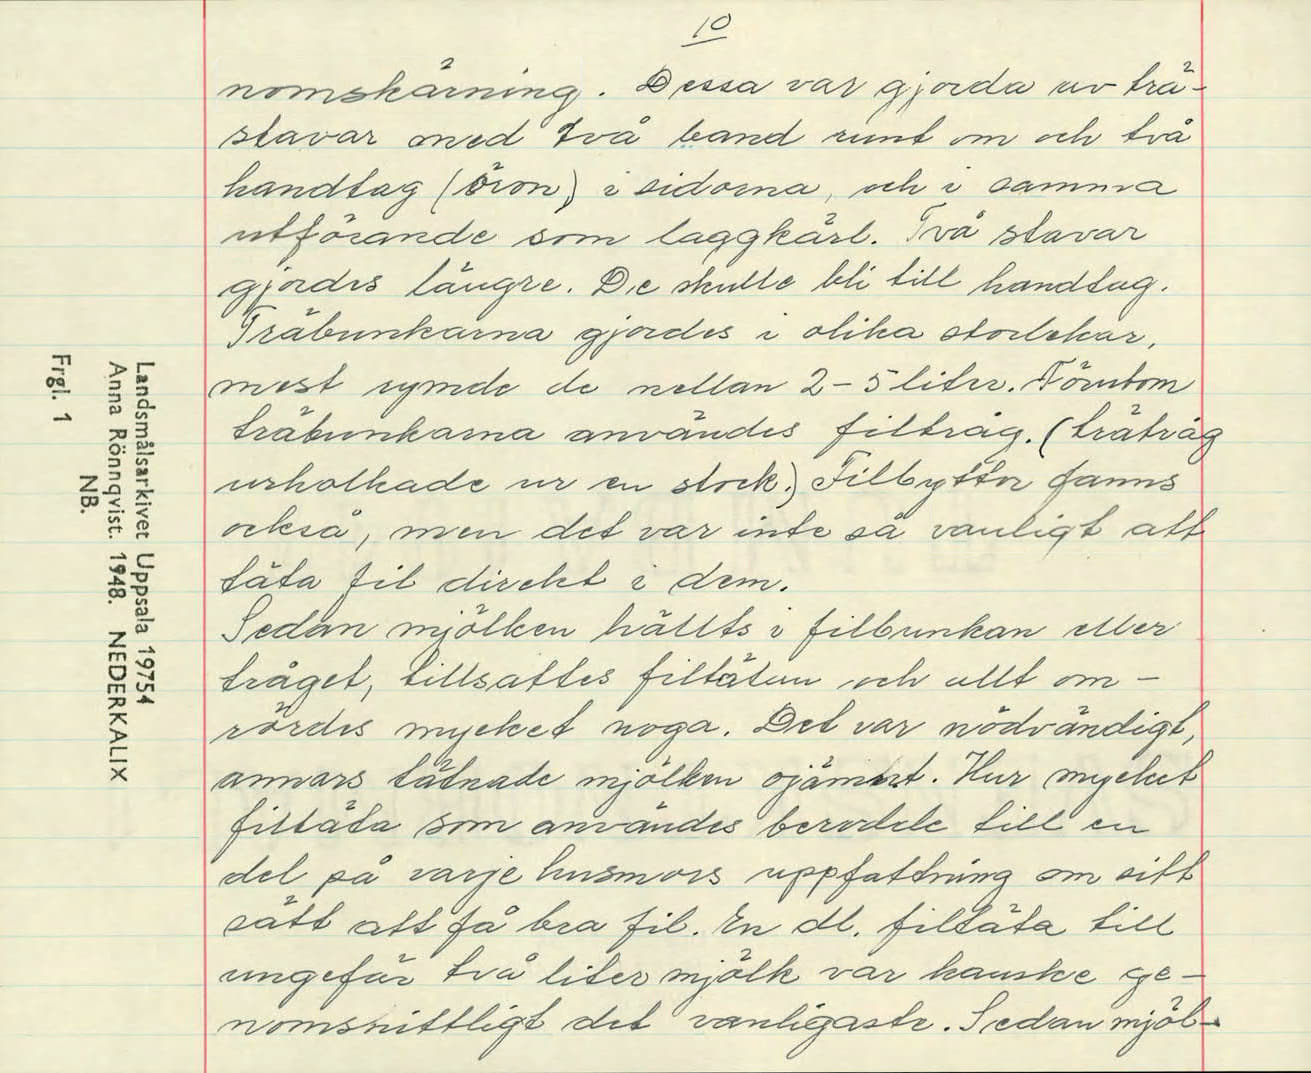 10
nomskärning. Dessa var gjorda av trä-
stavar med två band runt om och två
handtag (öron) i sidorna, och i samma
utförande som laggkärl. Två stavar
gjordes längre. De skulle bli till handtag.
Träbunkarna gjordes i olika storlekar,
mest rymde de mellan 2-5 liter. Förutom
träbunkarna användes filtråg. (träträg
urholkade ur en stock.) Filbyttor fanns
också, men det var inte så vanligt att
täta fil direkt i dem.
Sedan mjölken hällts i filbunkan eller
tråget, tillsattes filtätan och allt om-
rördes mycket noga. Det var nödvändigt,
annars tätnade mjölken ojämnt. Hur mycket
filtäta som användes berodde till en
del på varje husmors uppfattning om sitt
sätt att få bra fil. En dl. filtäta till
ungefär två liter mjölk var kanske ge-
nomsnittligt det vanligaste. Sedan mjöl-
Landsmålsarkivet Uppsala 19754
Anna Rönnqvist. 1948. NEDERKALIX
NB.
Frgl. 1